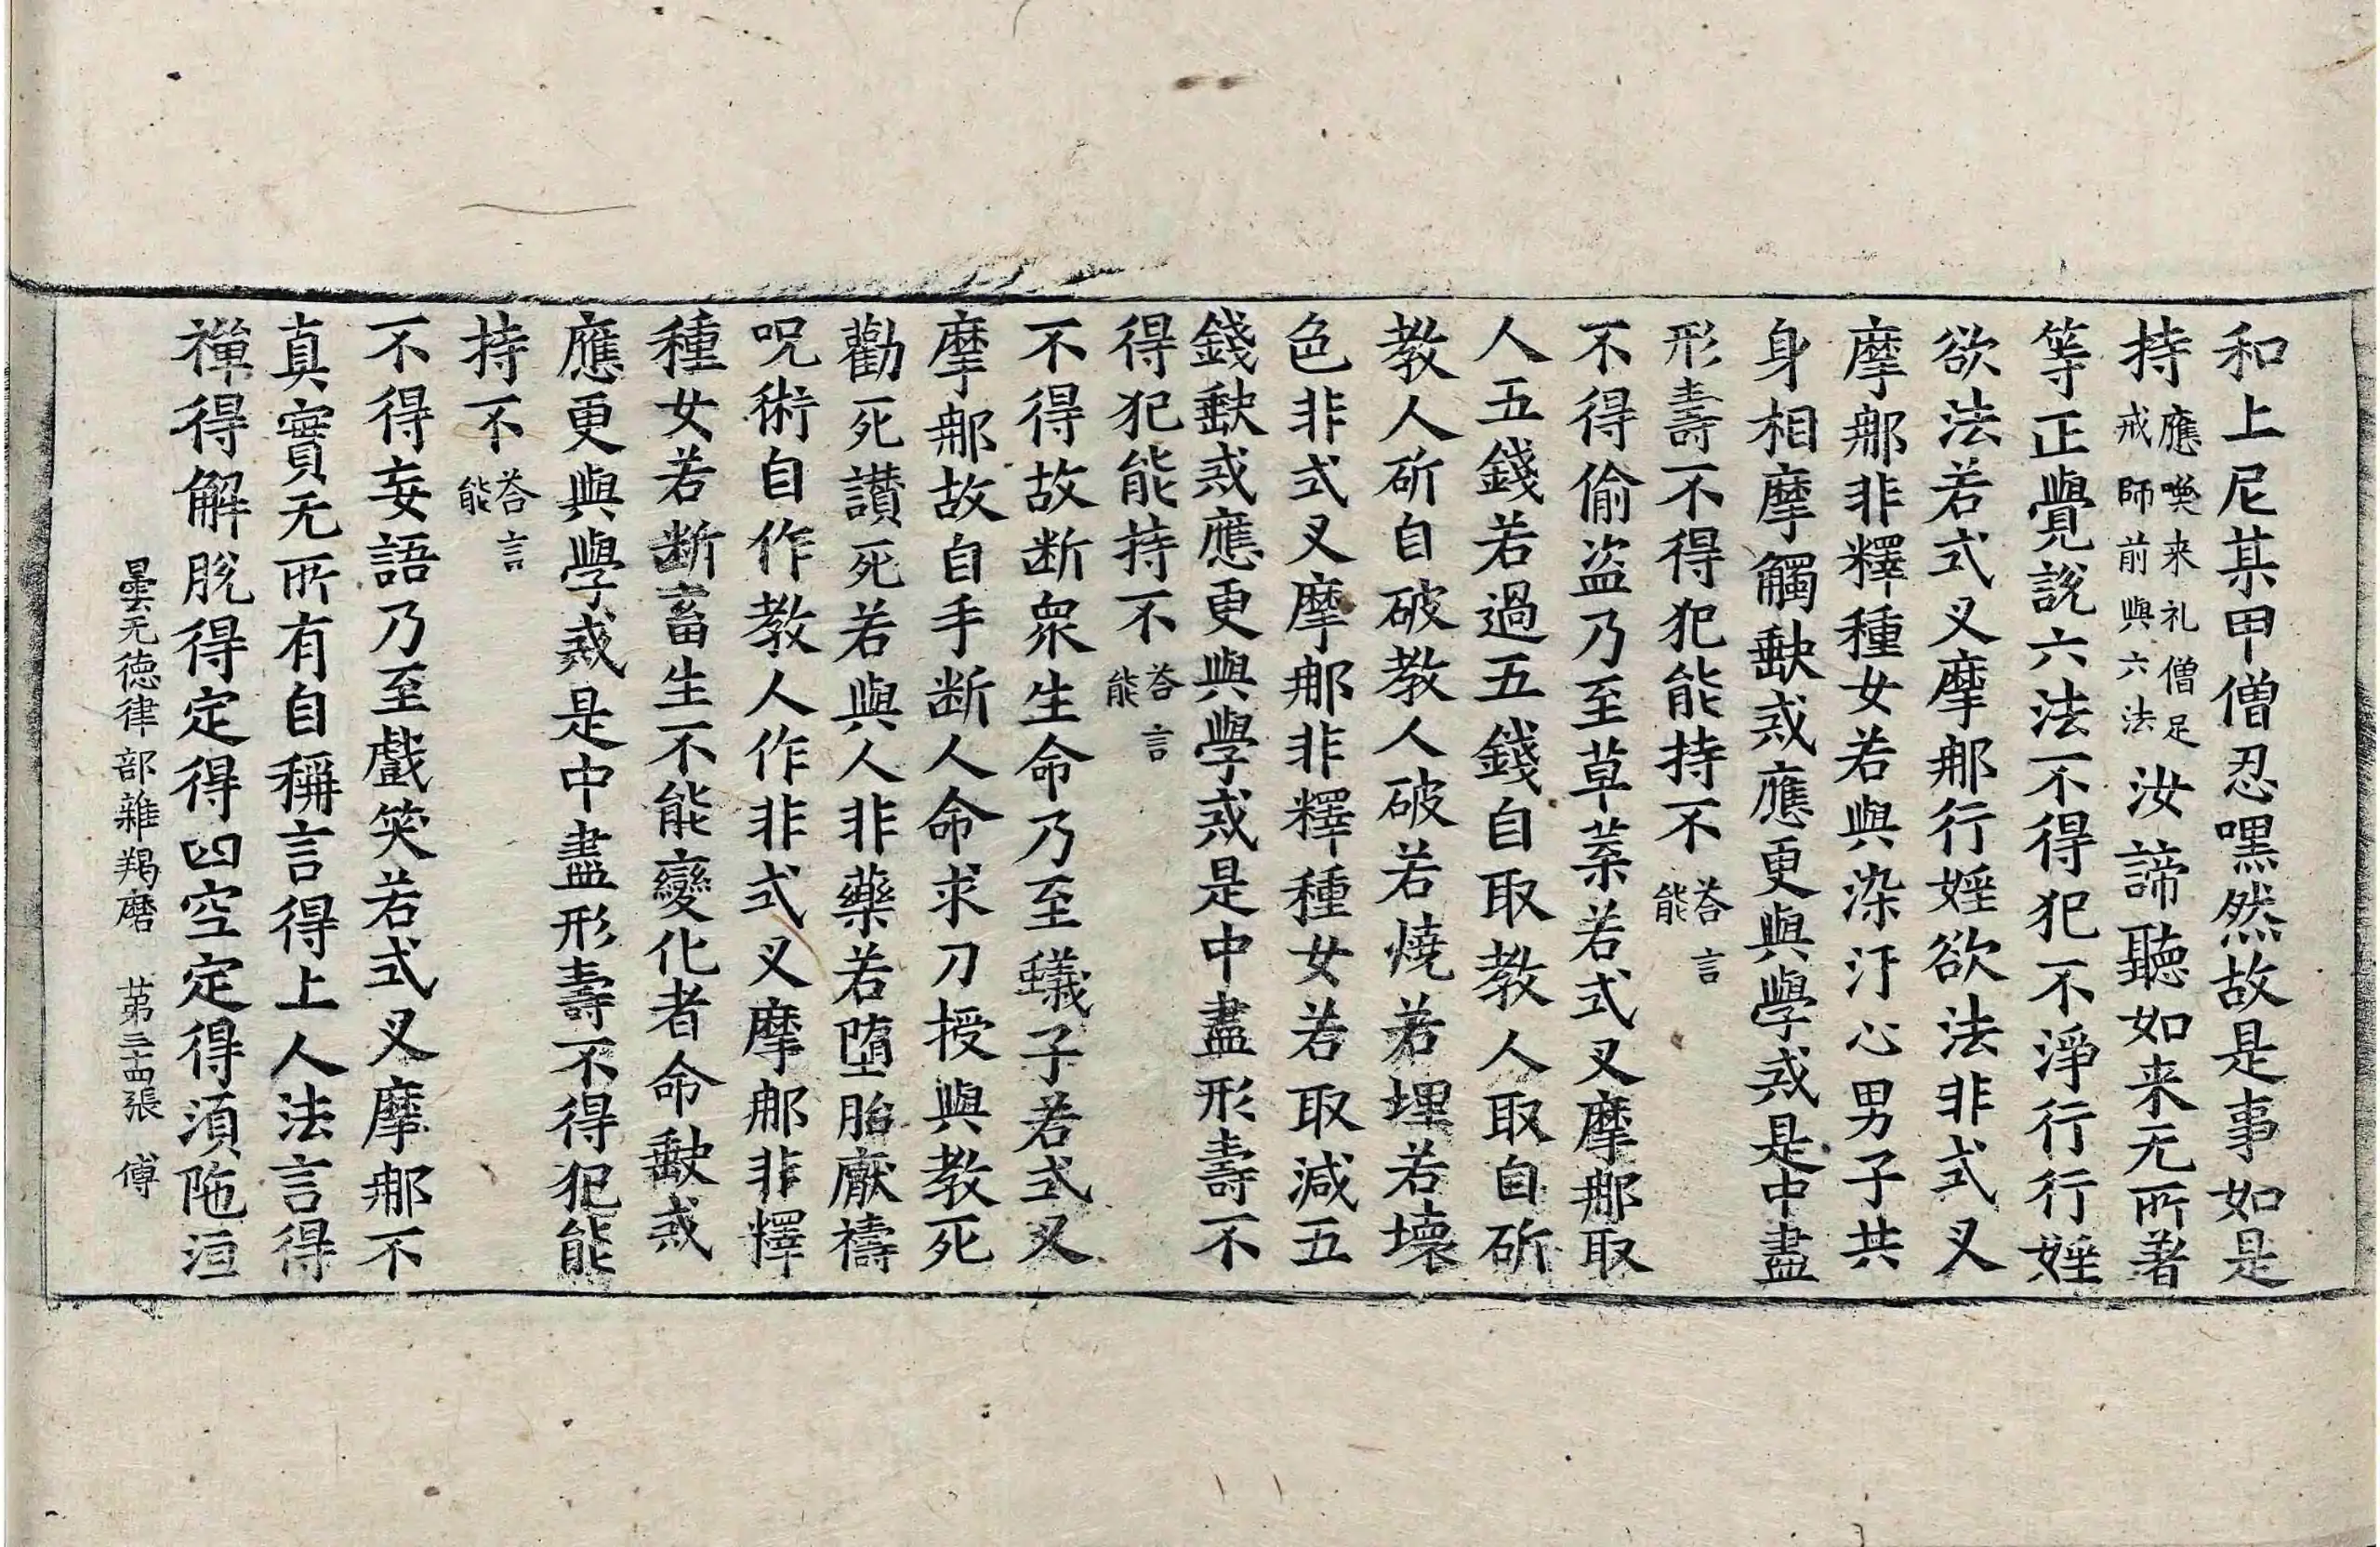 和上尼某甲僧忍嘿然故是事如是
持應喚来礼僧足戒師前與六法汝諦聽如来无所著
等正覺說六法不得犯不淨行行婬
欲法若式叉摩那行婬欲法非式叉
摩那非釋種女若與染汙心男子共
身相摩觸缺戒應更與學戒是中盡
形壽不得犯能持不荅言能
不得偷盜乃至草葉若式叉摩那取
人五錢若過五錢自取教人取自斫
教人斫自破教人破若燒若埋若壞
色非式叉摩那非釋種女若取減五
錢缺戒應更與學戒是中盡形壽不
得犯能持不荅言能
不得故断衆生命乃至蟻子若式叉
摩那故自手断人命求刀授與教死
勸死讃死若與人非藥若墮胎厭禱
呪術自作教人作非式叉摩那非釋
種女若断畜生不能變化者命缺戒
應更與學戒是中盡形壽不得犯能
持不荅言能
不得妄語乃至戲笑若式叉摩那不
真實无所有自稱言得上人法言得
禪得解脫得定得四空定得須陁洹
曇无德律部雜羯磨 苐三十四張 傅